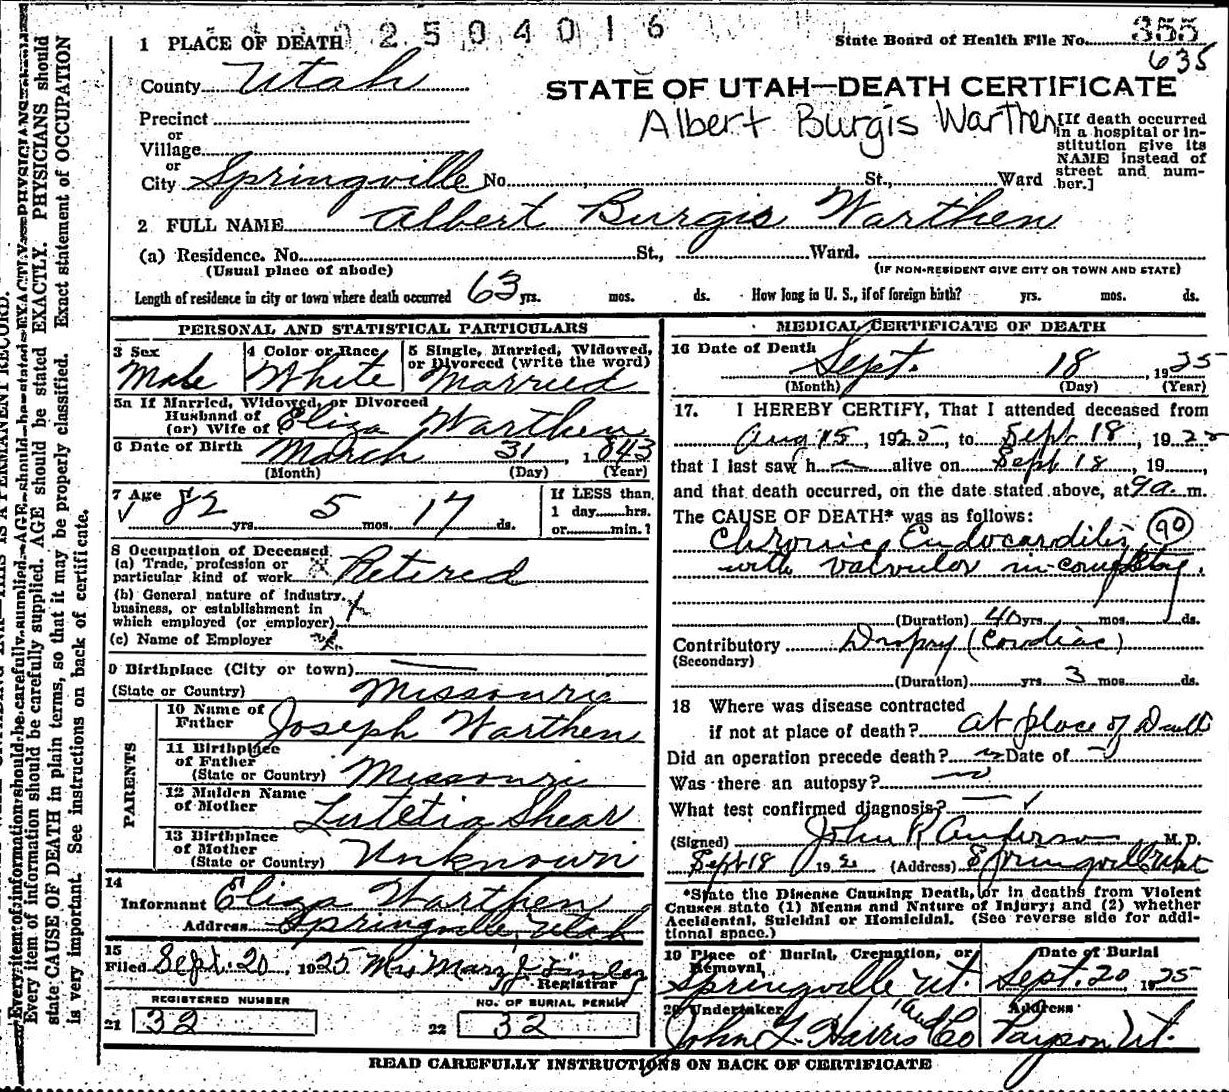 2 5 0 4 0 1 6
State Board of Health File No. 355
635
1 PLACE OF DEATH
County Utah
STATE OF UTAH—DEATH CERTIFICATE
Albert Burgis Warthen
Precinct
or
Village
or
City Springville No. St., Ward
[If death occurred
in a hospital or in-
stitution give its
NAME instead of
street and num-
ber.]
2 FULL NAME Albert Burgis Warthen
(a) Residence. No. St., Ward.
(Usual place of abode)
(IF NON-RESIDENT GIVE CITY OR TOWN AND STATE)
Length of residence in city or town where death occurred 63 yrs. mos. ds. How long in U. S., if of foreign birth? yrs. mos. ds.
PERSONAL AND STATISTICAL PARTICULARS
3 Sex
Male
4 Color or Race
White
5 Single, Married, Widowed,
or Divorced (write the word)
Married
5a If Married, Widowed, or Divorced
Husband of
(or) Wife of Eliza Warthen
6 Date of Birth March 31, 1843
(Month) (Day) (Year)
7 Age
82 yrs. 5 mos. 17 ds.
If LESS than
1 day hrs.
or min.?
8 Occupation of Deceased
(a) Trade, profession or
particular kind of work Retired
(b) General nature of industry,
business, or establishment in
which employed (or employer)
(c) Name of Employer
9 Birthplace (City or town)
(State or Country) Missouri
PARENTS
10 Name of
Father Joseph Warthen
11 Birthplace
of Father
(State or Country) Missouri
12 Maiden Name
of Mother Lutetia Shear
13 Birthplace
of Mother
(State or Country) Unknown
14
Informant Eliza Warthen
Address Springville, Utah
15
Filed Sept. 20 1925 Mrs Mary J.
Registrar
REGISTERED NUMBER
21 32
NO. OF BURIAL PERMIT
22 32
MEDICAL CERTIFICATE OF DEATH
16 Date of Death Sept. 18, 1925
(Month) (Day) (Year)
17. I HEREBY CERTIFY, That I attended deceased from
Aug 15, 1925, to Sept 18, 1925
that I last saw h alive on Sept 18, 19
and that death occurred, on the date stated above, at 9 a. m.
The CAUSE OF DEATH* was as follows:
Chronic Endocarditis 90
with valvular
(Duration) 40 yrs. mos. ds.
Contributory Dropsy (Cardiac)
(Secondary)
(Duration) yrs 3 mos. ds.
18 Where was disease contracted
if not at place of death? at place of Death
Did an operation precede death? no Date of
Was there an autopsy? no
What test confirmed diagnosis?
(Signed) John R Anderson M. D.
Sept 18 192 (Address) Springville Utah
*State the Disease Causing Death, or in deaths from Violent
Causes state (1) Means and Nature of Injury; and (2) whether
Accidental, Suicidal or Homicidal. (See reverse side for addi-
tional space.)
19 Place of Burial, Cremation, or
Removal
Springville Ut.
Date of Burial
Sept. 20, 1925
20 Undertaker
John T. Harris and Co
Address
Payson Ut.
READ CAREFULLY INSTRUCTIONS ON BACK OF CERTIFICATE
THIS IS A PERMANENT RECORD.
Every item of information should be carefully supplied. AGE should be stated EXACTLY. PHYSICIANS should
state CAUSE OF DEATH in plain terms, so that it may be properly classified. Exact statement of OCCUPATION
is very important. See instructions on back of certificate.